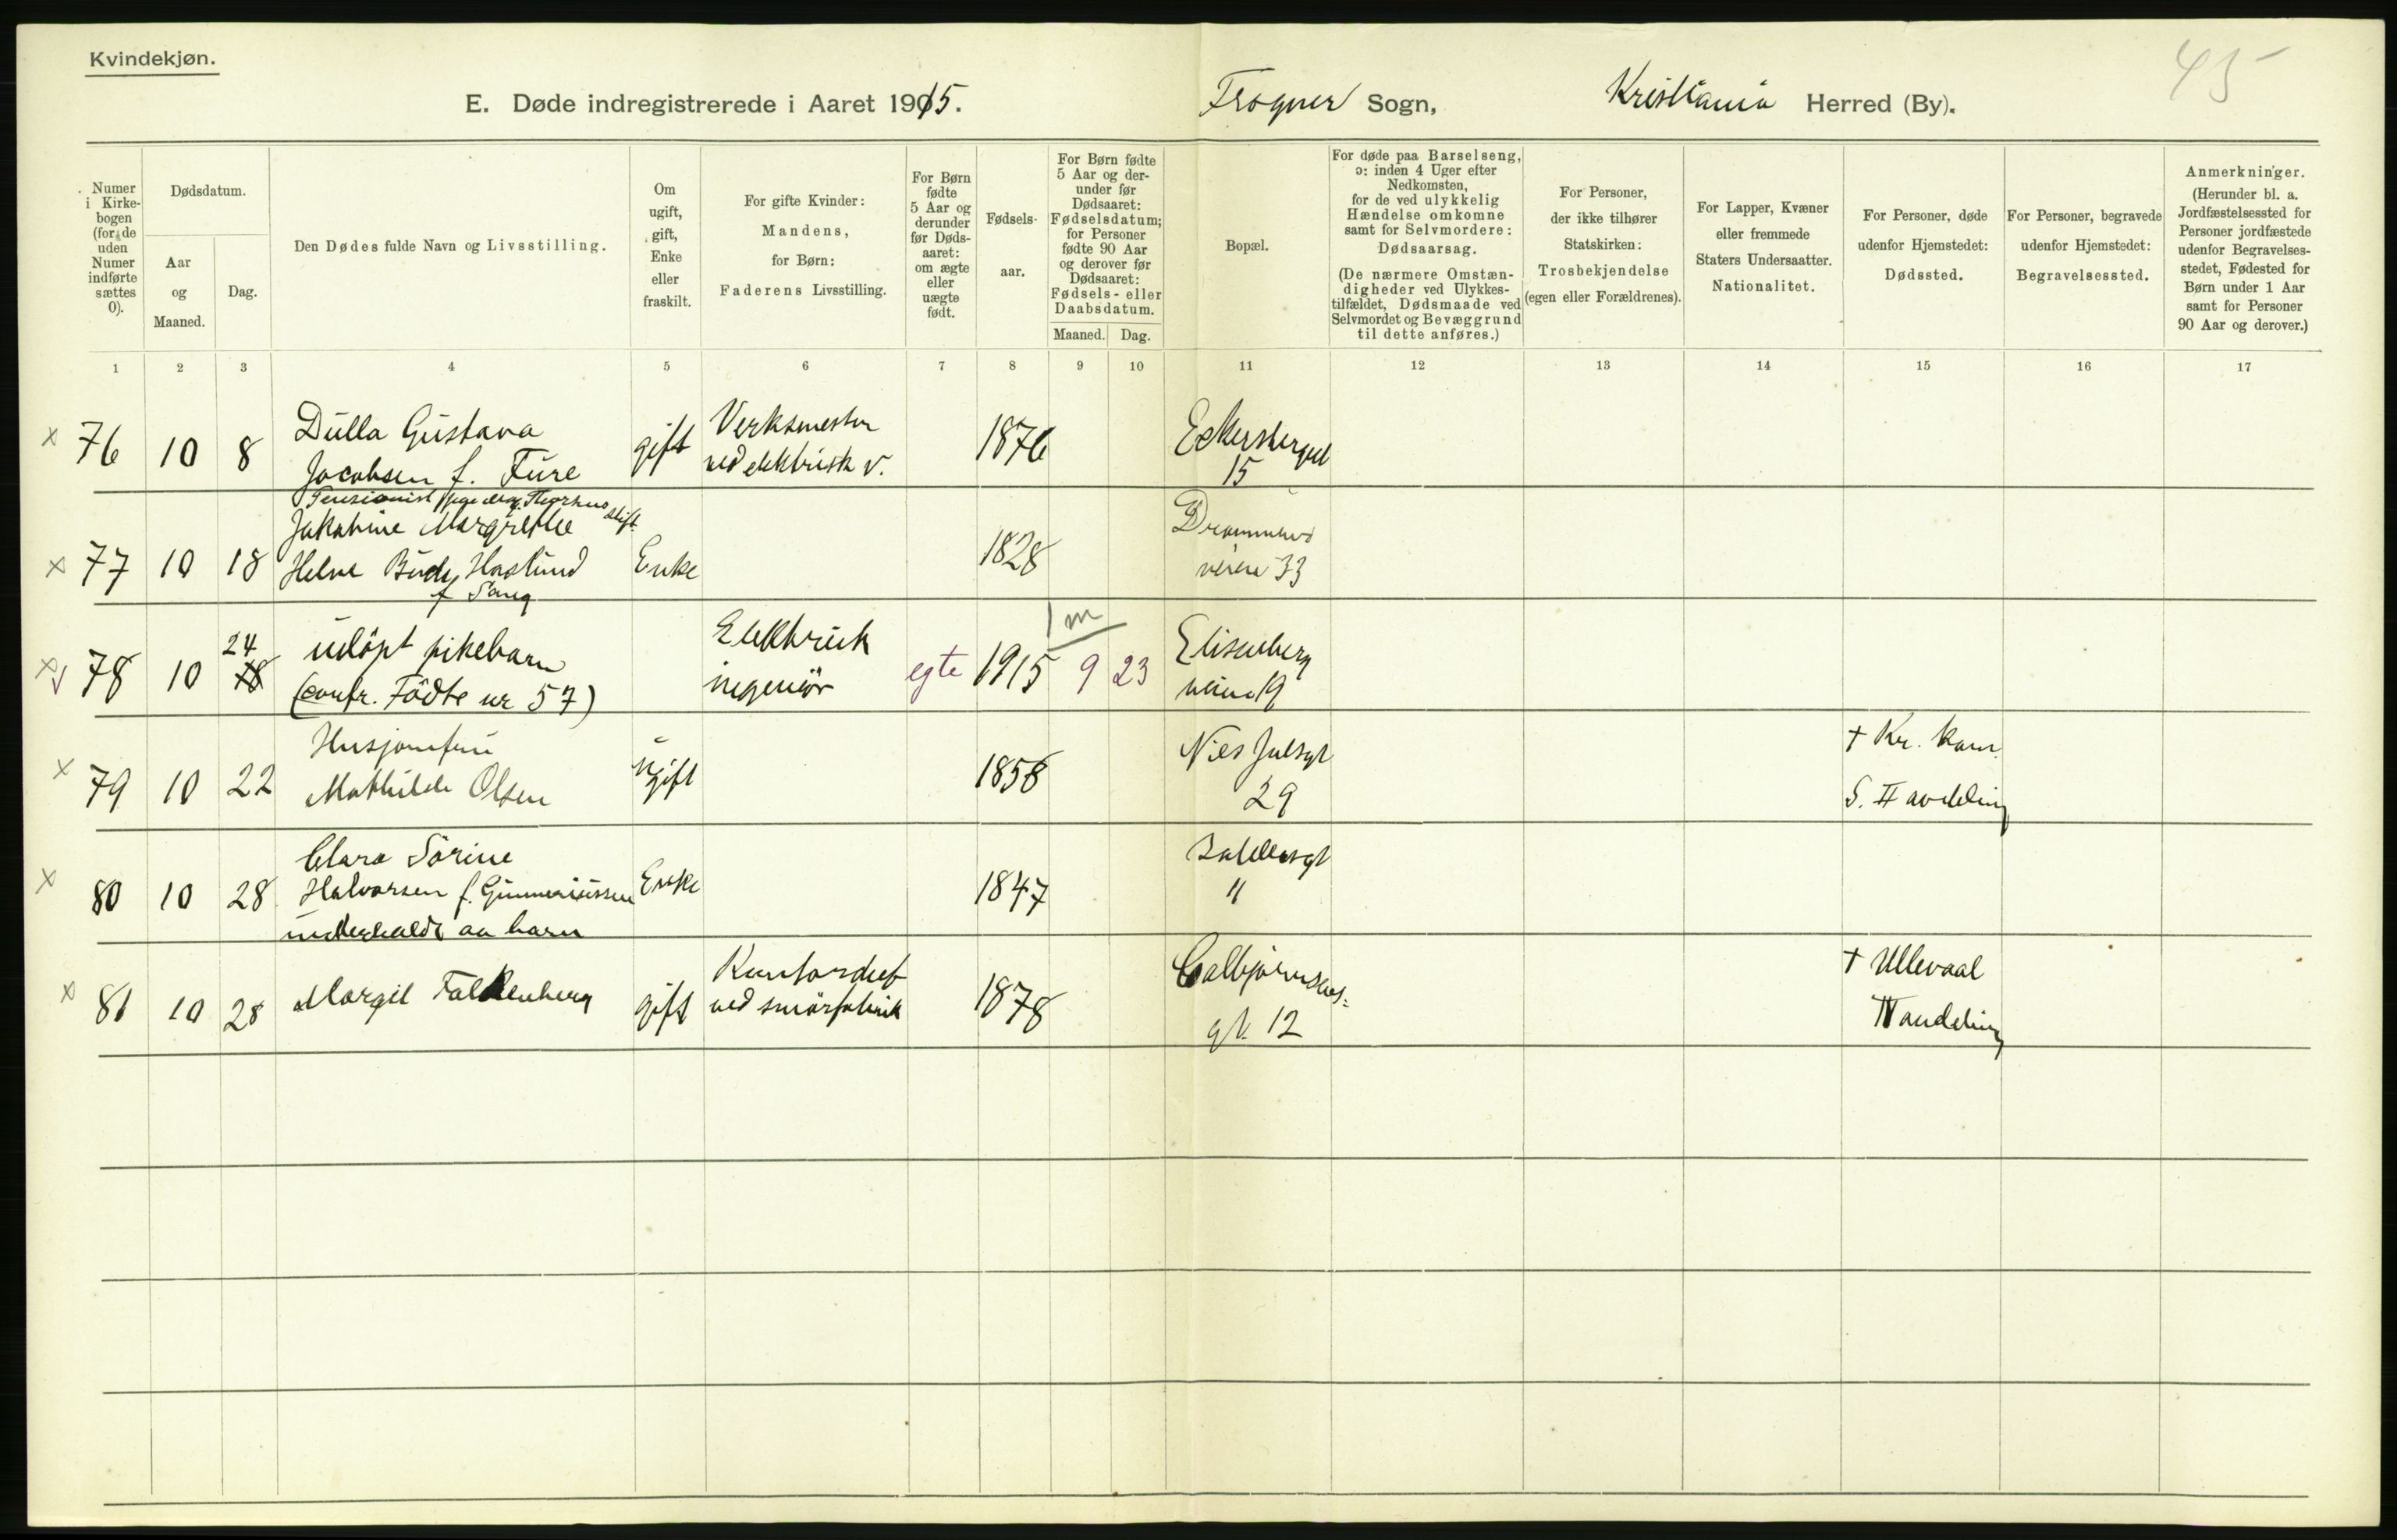 Kvindekjøn.
45
E. Døde indregistrerede i Aaret 1915. Frogner Sogn, Kristiania Herred (By).
Numer i Kirkebogen (for de uden Numer indførte sættes 0).
Dødsdatum.
Aar og Maaned.
Dag.
Den Dødes fulde Navn og Livsstilling.
Om ugift, gift, Enke eller fraskilt.
For gifte Kvinder: Mandens, for Børn: Faderens Livsstilling.
For Børn fødte 5 Aar og derunder før Dødsaaret: om ægte eller uægte født.
Fødselsaar.
For Børn fødte 5 Aar og derunder før Dødsaaret: Fødselsdatum; for Personer fødte 90 Aar og derover før Dødsaaret: Fødsels- eller Daabsdatum.
Maaned. Dag.
Bopæl.
For døde paa Barselseng, ɔ: inden 4 Uger efter Nedkomsten, for de ved ulykkelig Hændelse omkomne samt for Selvmordere: Dødsaarsag.
(De nærmere Omstændigheder ved Ulykkestilfældet, Dødsmaade ved Selvmordet og Bevæggrund til dette anføres.)
For Personer, der ikke tilhører Statskirken: Trosbekjendelse (egen eller Forældrenes).
For Lapper, Kvæner eller fremmede Staters Undersaatter. Nationalitet.
For Personer, døde udenfor Hjemstedet: Dødssted.
For Personer, begravede udenfor Hjemstedet: Begravelsessted.
Anmerkninger. (Herunder bl. a. Jordfæstelsessted for Personer jordfæstede udenfor Begravelsesstedet, Fødested for Børn under 1 Aar samt for Personer 90 Aar og derover.)
1 2 3 4 5 6 7 8 9 10 11 12 13 14 15 16 17
x 76 10 8 Dulla Gustava Jacobsen f. Fure gift Verksmester ved elektrisk v. 1876 Eckersbergvei 15
x 77 10 18 Pensionist Jakobine Margrethe Helve Bude Haslund f Enke 1828 Drammensveien 33
x 78 10 24 18 udöpt pikebarn (confr. Födte nr 57) Elektrisk ingeniör egte 1915 1 m 9 23 Elisenbergveien 19
x 79 10 22 Husjomfru Mathilde Olsen ugift 1858 Niels Julsgt 29 + Kr. kom. S. II avdeling
x 80 10 28 Clara Sörine Halvorsen f. Gunneriussen underholdt av barn Enke 1847 Baldersgt 11
x 81 10 28 Margit Falkenberg gift Kontorchef ved smörfabrik 1878 Colbjørnsens=gt. 12 + Ullevaal avdeling